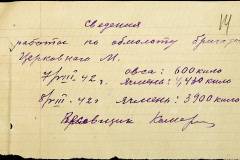 Сведения
14
работах по обмолоту бригады
Церковного М.
7/VIII 42 г. овса: 600 кило
ячмень: 1,430 кило
8/VIII-42 г ячмень: 3900 кило
Весовщик